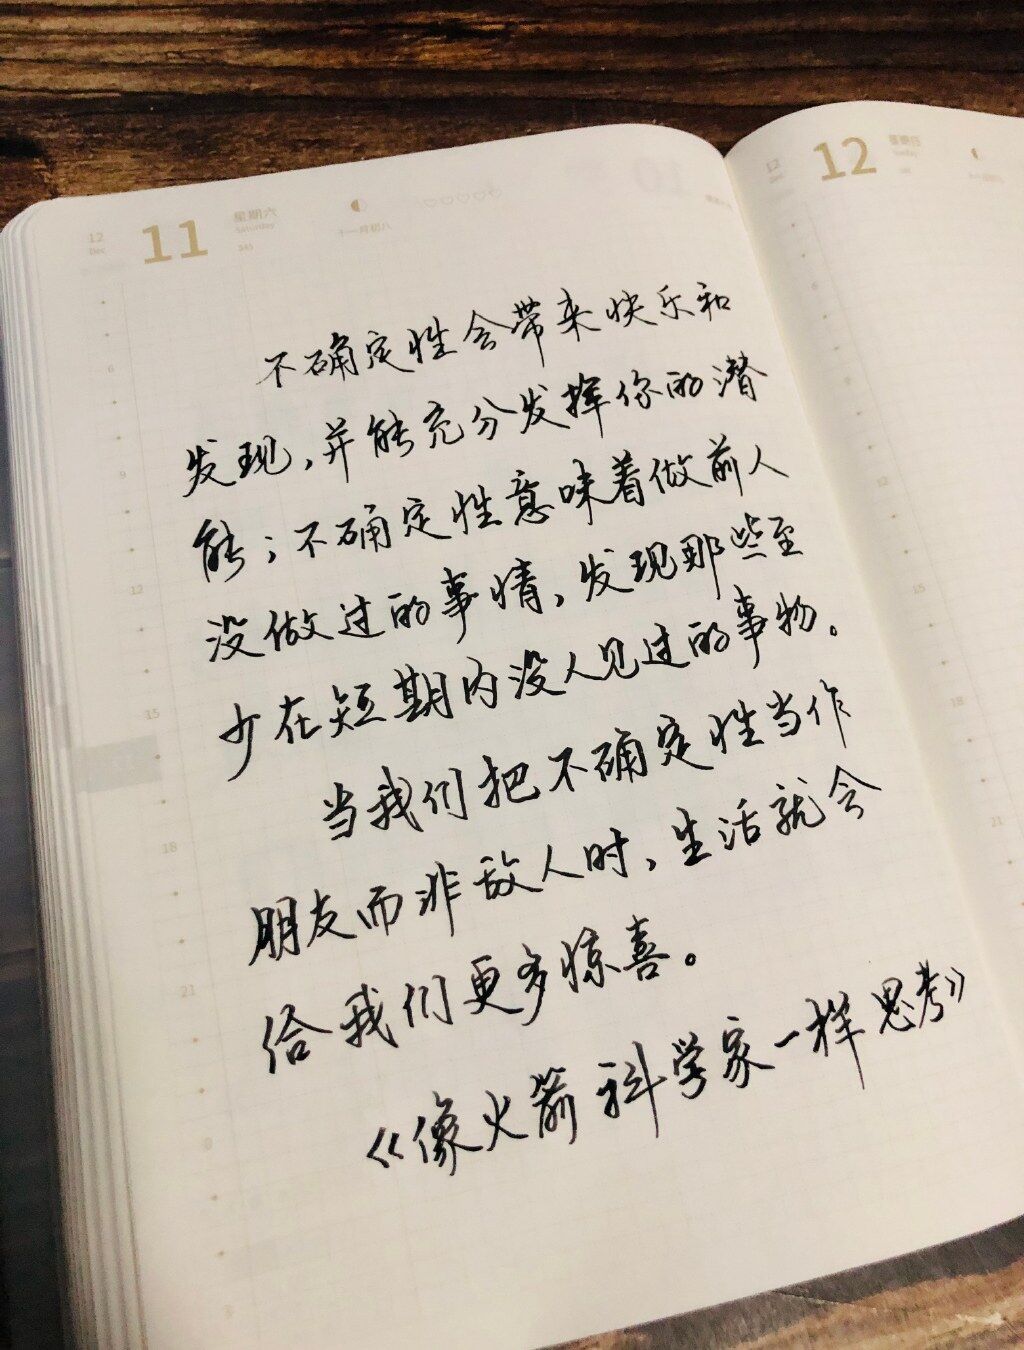 12
Dec
11
星期六
Saturday
345
十一月初八
12
12
星期日
Sunday
不确定性会带来快乐和
发现,并能充分发挥你的潜
能;不确定性意味着做前人
没做过的事情,发现那些至
少在短期内没人见过的事物。
当我们把不确定性当作
朋友而非敌人时,生活就会
给我们更多惊喜。
《像火箭科学家一样思考》
6
9
12
15
18
21
12
15
18
21